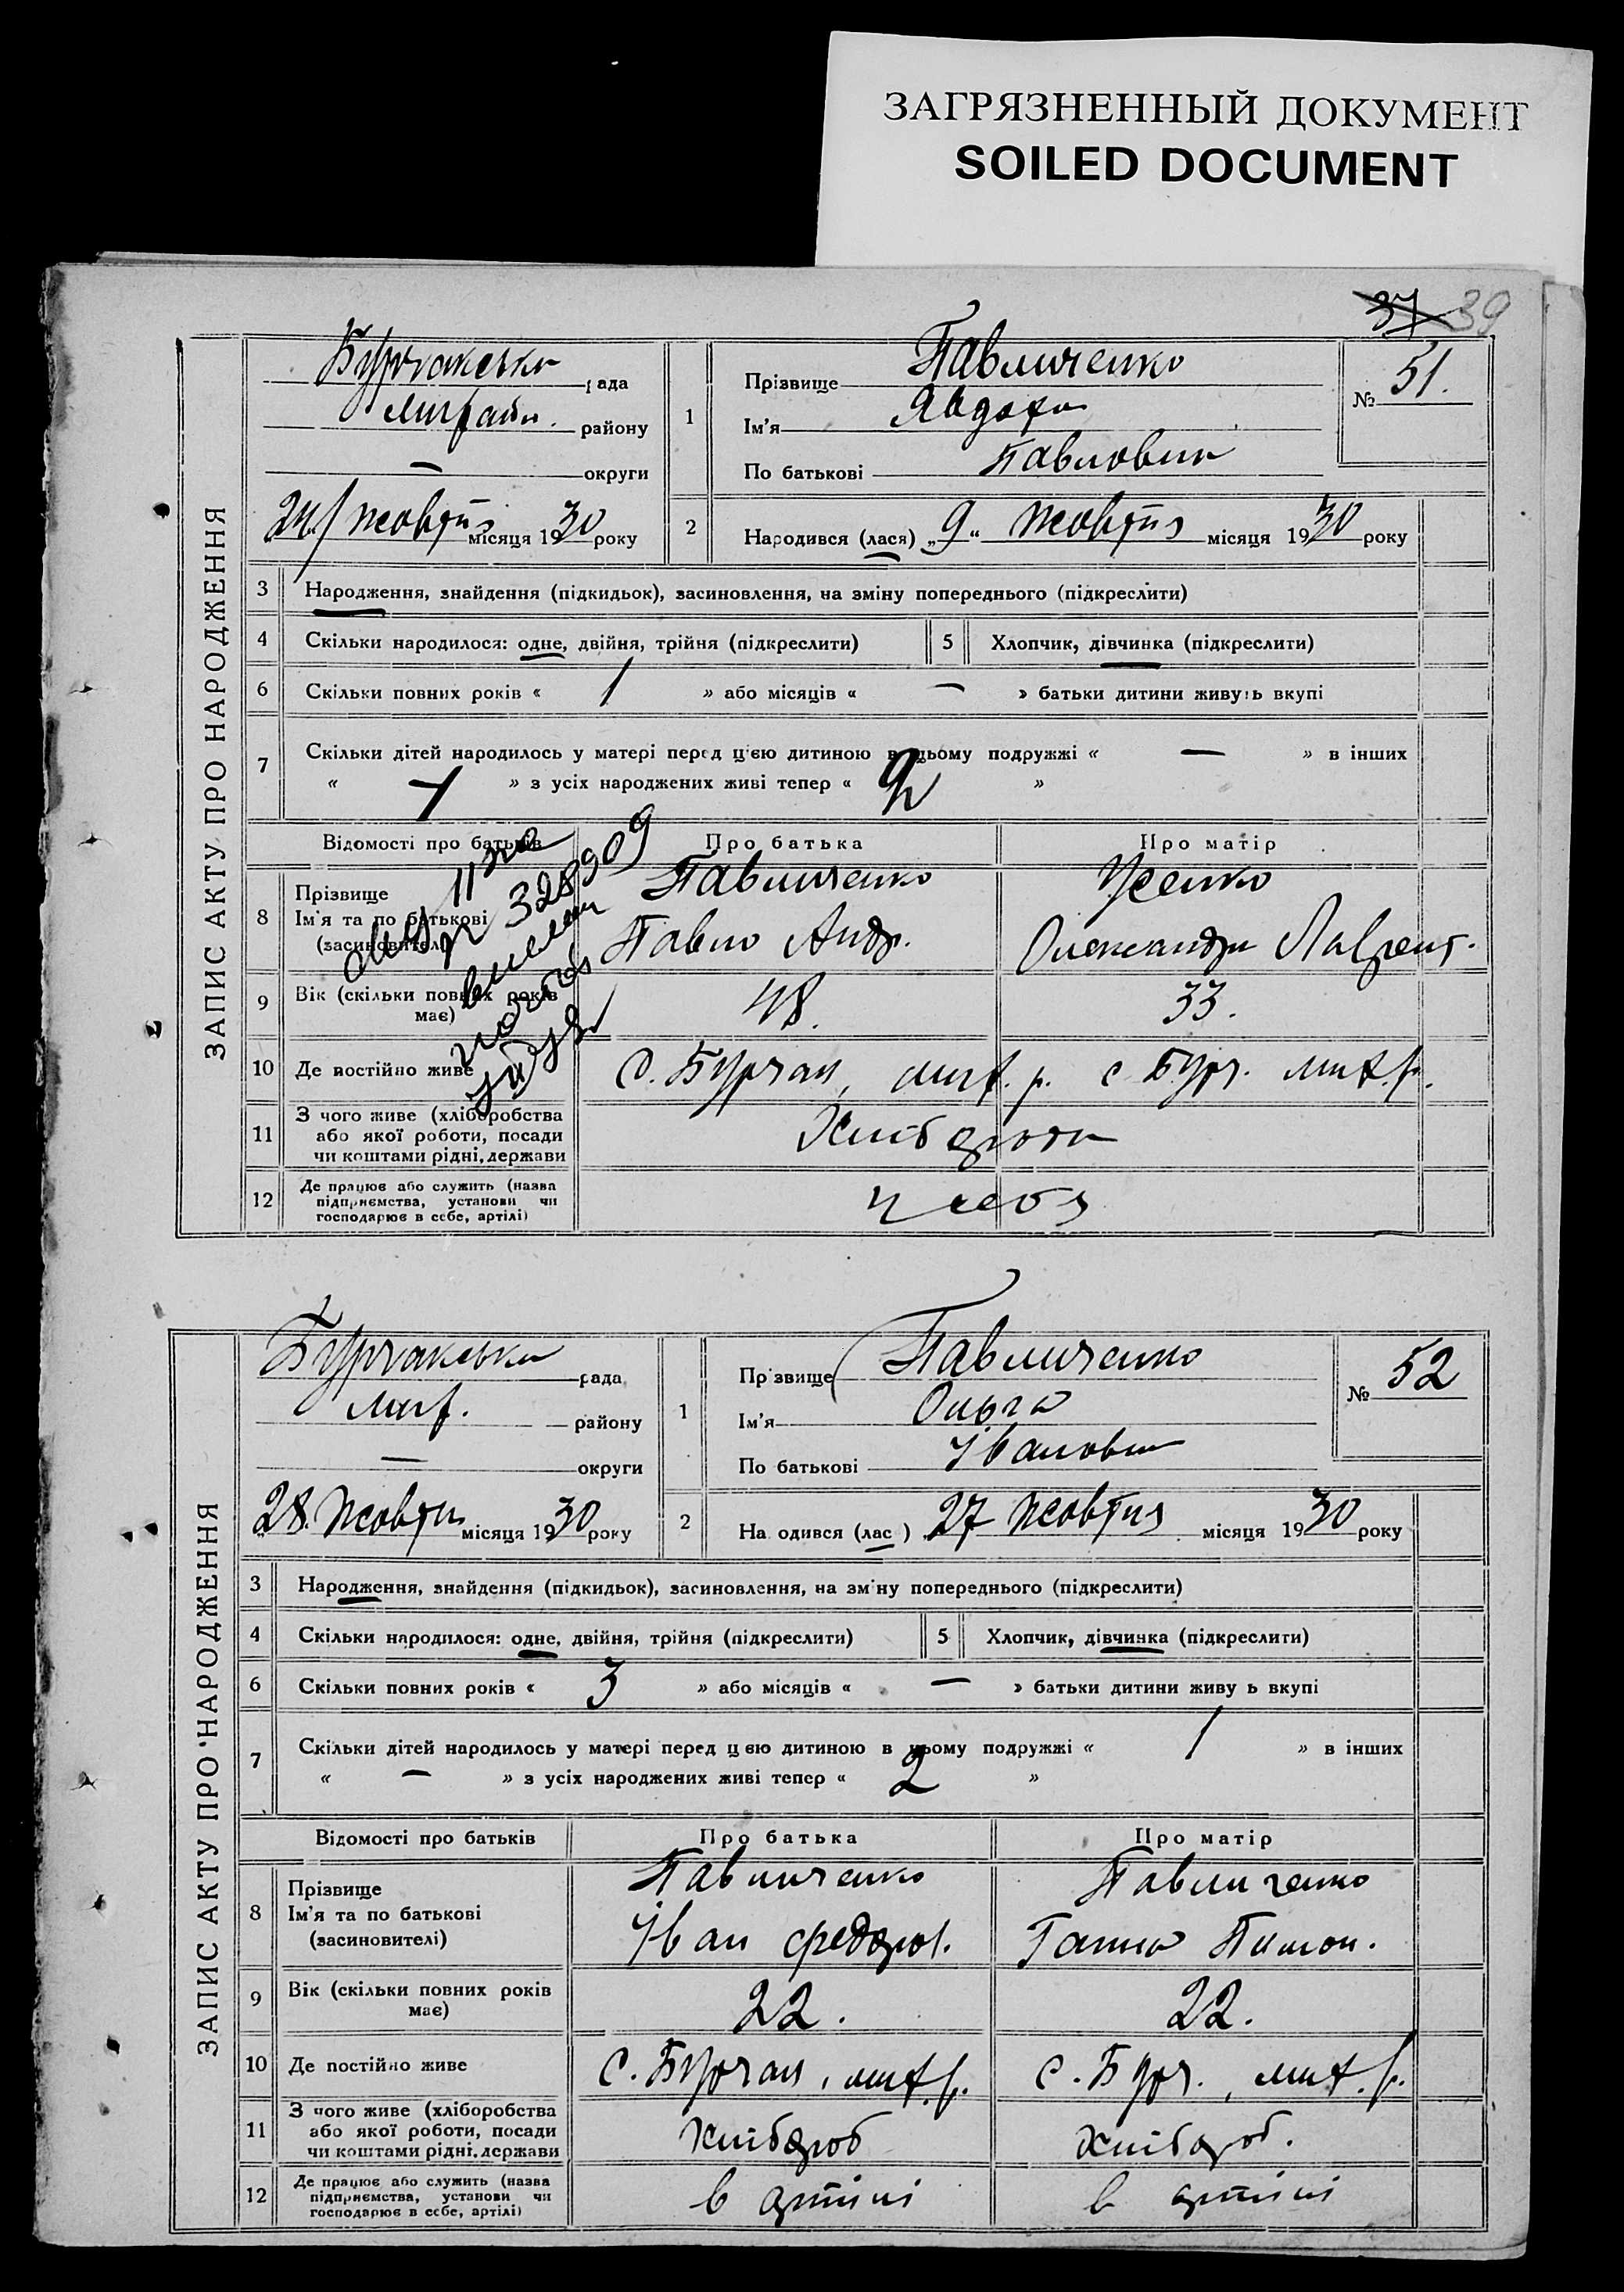 ЗАГРЯЗНЕННЫЙ ДОКУМЕНТ
SOILED DOCUMENT
37 39
ЗАПИС АКТУ ПРО НАРОДЖЕННЯ
Бурчакська рада
района. району
— округи
24/ жовтня місяця 1930 року
1
Прізвище Павличенко
Ім'я Явдоха
По батькові Павловна
№ 51.
2
Народився (лася) „9“ жовтня місяця 1930 року
3 Народження, знайдення (підкидьок), засиновлення, на зміну попереднього (підкреслити)
4 Скільки народилося: одне, двійня, трійня (підкреслити) 5 Хлопчик, дівчинка (підкреслити)
6 Скільки повних років « 1 » або місяців « — » батьки дитини живуть вкупі
7 Скільки дітей народилось у матері перед цією дитиною в цьому подружжі « — » в інших
« 1 » з усіх народжених живі тепер « 2 »
Відомості про батьків Про батька Про матір
328909
8 Прізвище
Ім'я та по батькові
(засиновителі)
Павличенко
Павло Андр.
Усенко
Олександра Лаврент.
9 Вік (скільки повних років
має)
48. 33.
10 Де постійно живе С. Бурчак, р. с Бурч. р.
11 З чого живе (хліборобства
або якої роботи, посади
чи коштами рідні, держави
12 Де працює або служить (назва
підприємства, установи чи
господарює в себе, артілі)
у себе
ЗАПИС АКТУ ПРО НАРОДЖЕННЯ
Бурчакська рада
району
— округи
28. Жовтня місяця 1930 року
1
Прізвище Павличенко
Ім'я Ольга
По батькові Івановна
№ 52
2
Народився (лас ) 27 жовтня місяця 1930 року
3 Народження, знайдення (підкидьок), засиновлення, на зміну попереднього (підкреслити)
4 Скільки народилося: одне, двійня, трійня (підкреслити) 5 Хлопчик, дівчинка (підкреслити)
6 Скільки повних років « 3 » або місяців « — » батьки дитини живу ь вкупі
7 Скільки дітей народилось у матері перед цією дитиною в цьому подружжі « 1 » в інших
« — » з усіх народжених живі тепер « 2 »
Відомості про батьків Про батька Про матір
8 Прізвище
Ім'я та по батькові
(засиновителі)
Павличенко
Іван Федоров.
Павличенко
Ганна
9 Вік (скільки повних років
має)
22. 22.
10 Де постійно живе С. Бурчак, р. С. Бурч., р.
11 З чого живе (хліборобства
або якої роботи, посади
чи коштами рідні, держави
Хлібороб хлібороб.
12 Де працює або служить (назва
підприємства, установи чи
господарює в себе, артілі)
в артілі в артілі